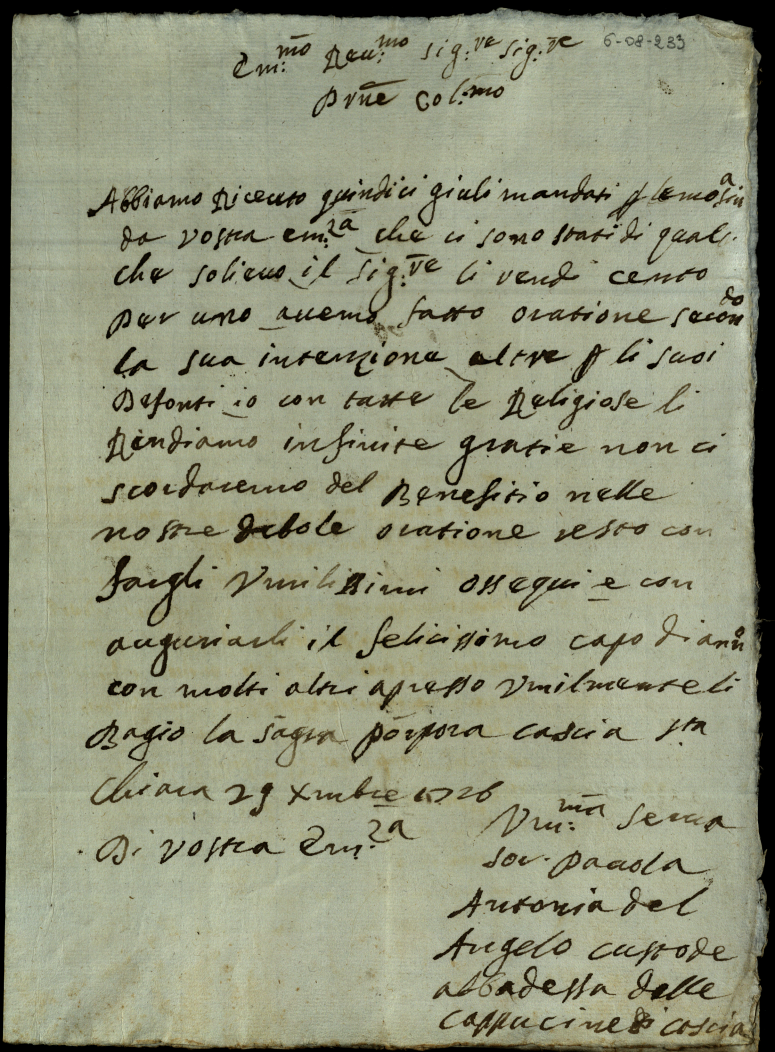 6-08-233
Em:mo Reu:mo Sig:re Sig:re
Prne Col:mo
Abbiamo Riceuto quindici giuli mandati p lemosina
da Vostra em:za che ci sono stati di qual-
che solieuo il Sig:re li rendi cento
per uno auemo fatto oratione secondo
la sua intenzione altre p li suoi
Defonti io con tutte le Religiose li
Rendiamo infinite gratie non ci
scordaremo del Benefitio nelle
nostre debole oratione resto con
fargli Vmilissimi ossequi e con
auguriarli il felicissimo capo di anno
con molti altri apresso Vmilmente li
Bagio la sagra porpora cascia sta
Chiara 29 Xmbre 1726
Di Vostra Em:za
Vm:ma Serua
Sor Paaola
Antonia del
Angelo custode
abbadessa delle
cappucine di cascia